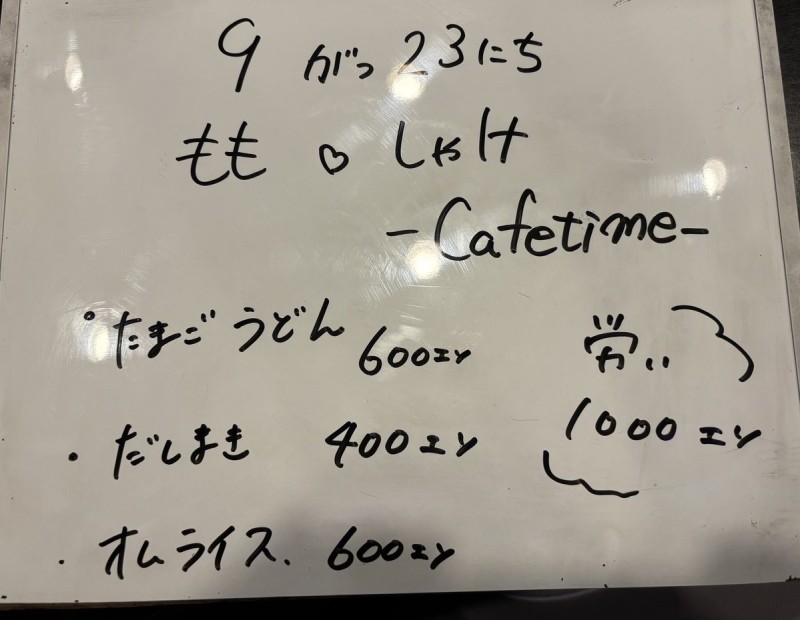 9がつ23にち
もも♡しゃけ
-Cafetime-
・たまごうどん 600エン
労い
1000エン
・だしまき 400エン
・オムライス. 600エン